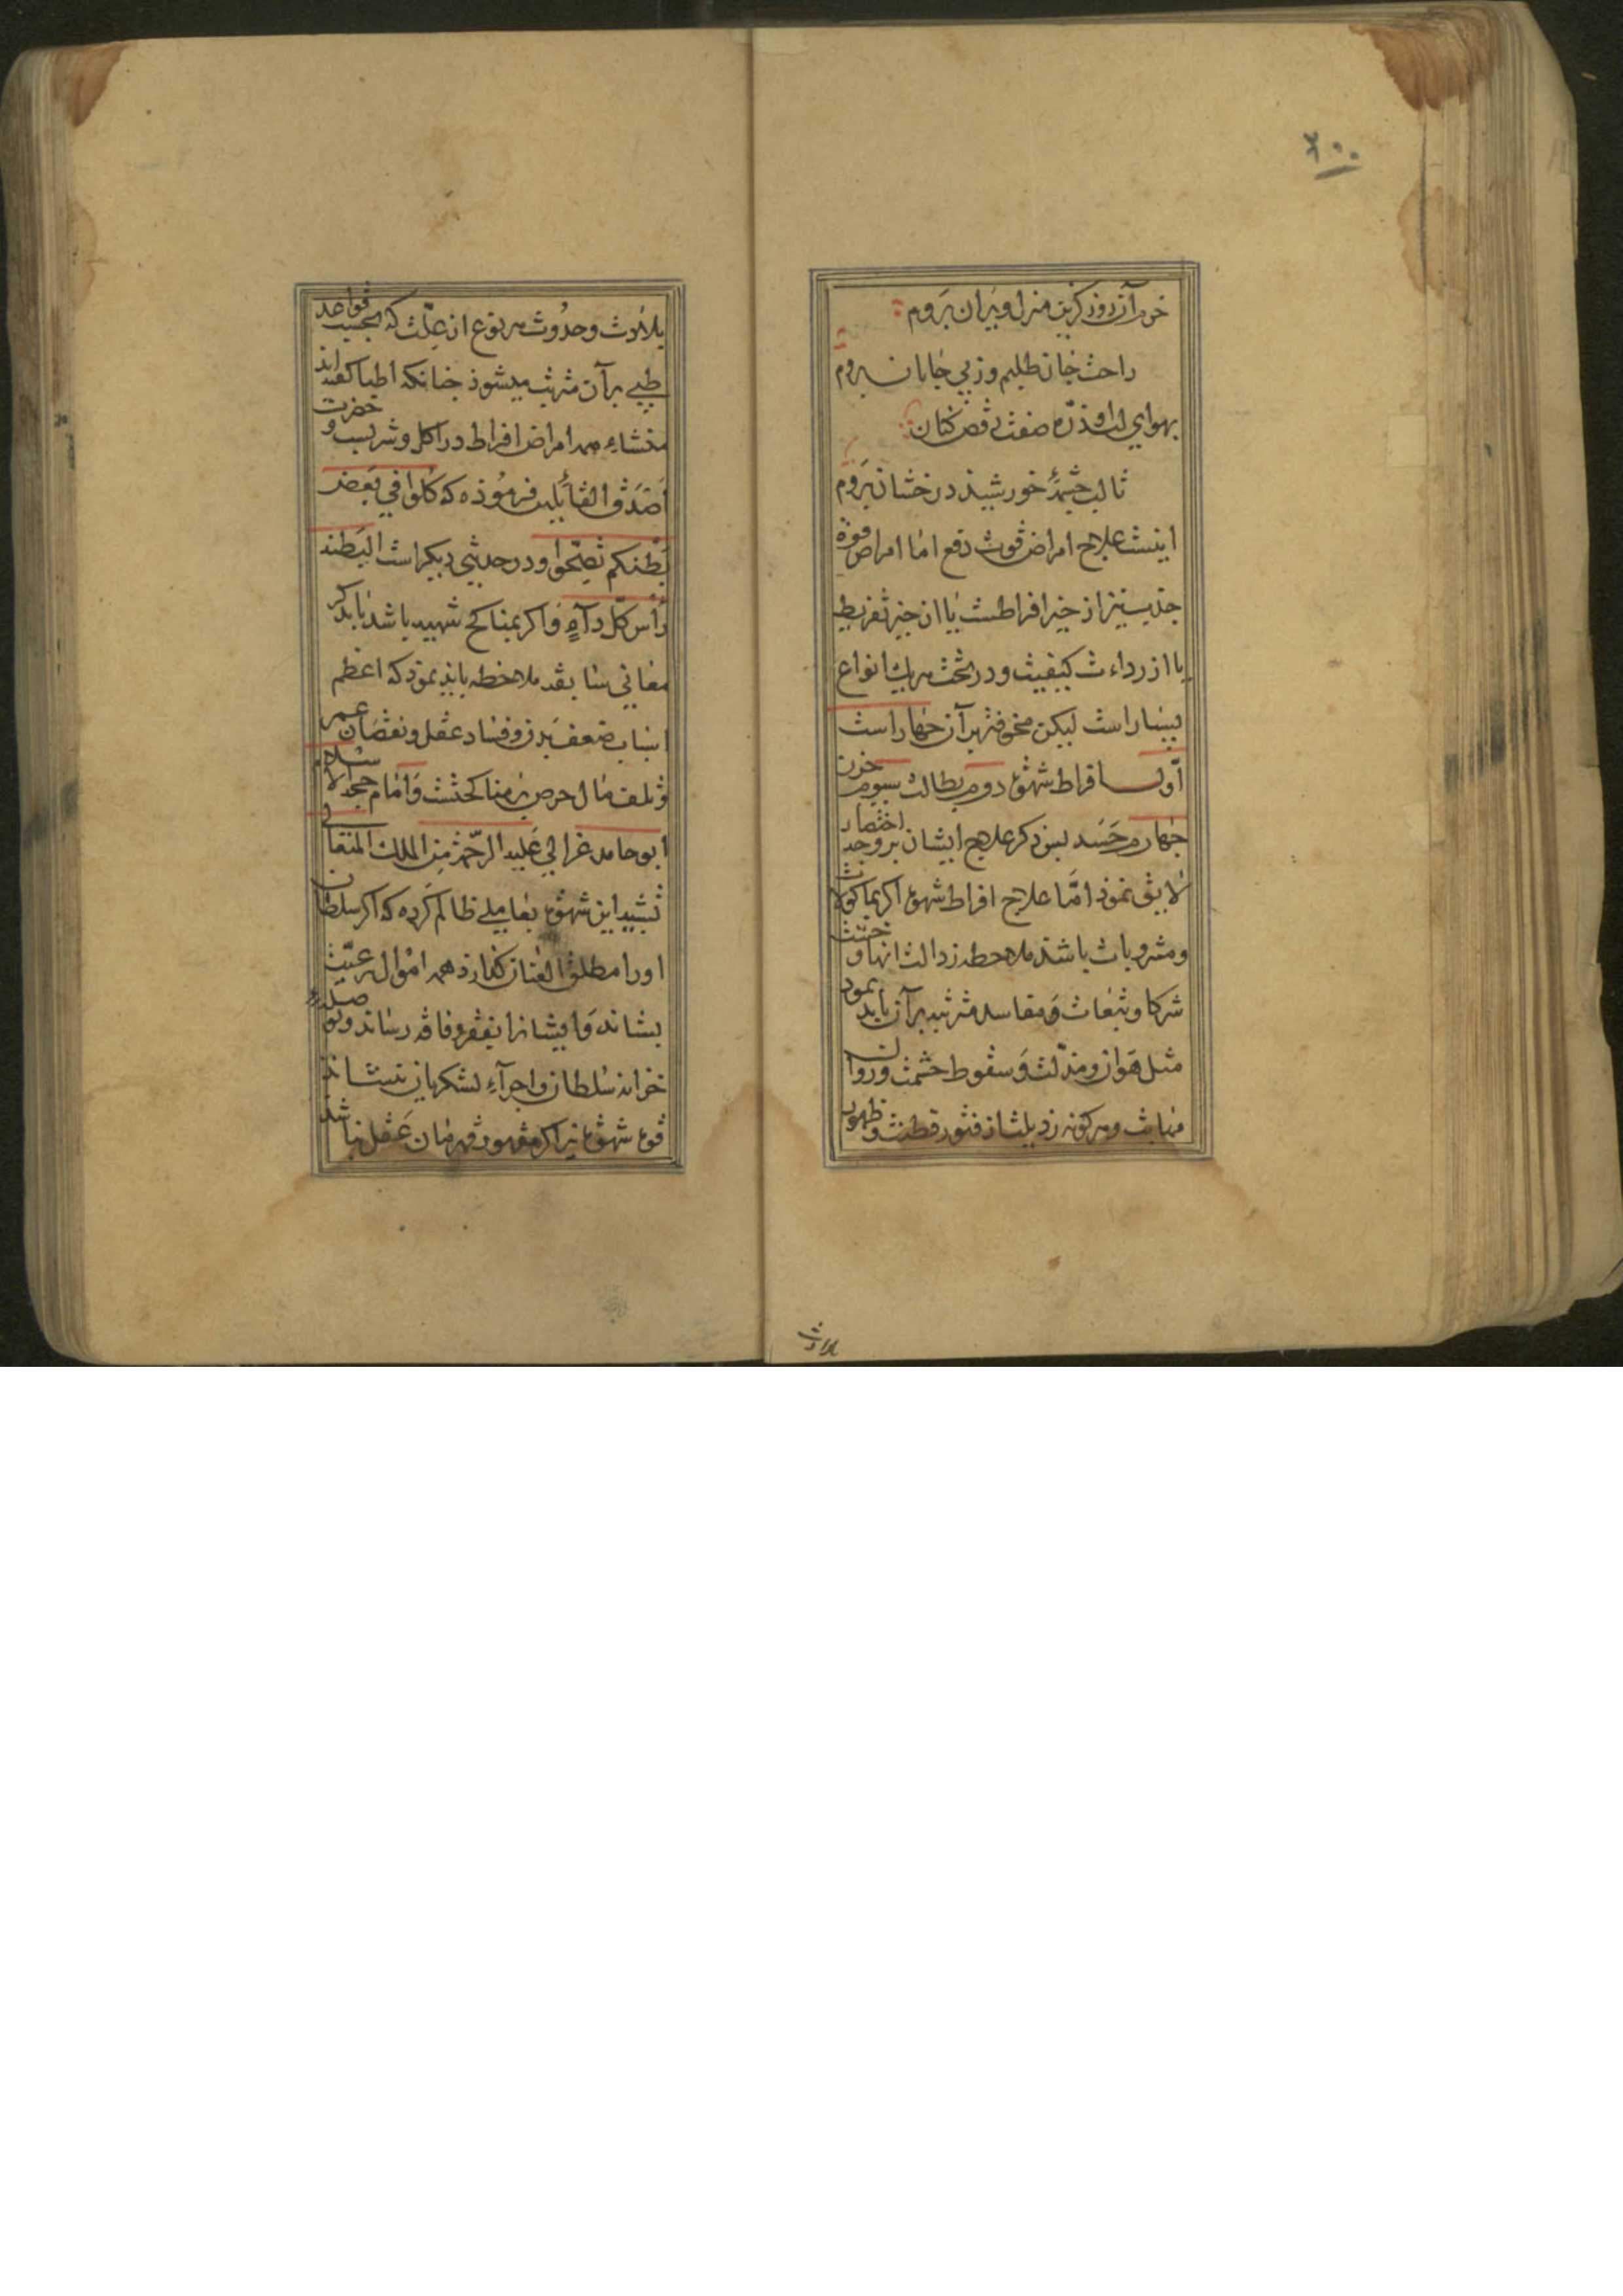 ۲۰۰
خرم آن روز کزین منزل ویران بروم
راحت جان طلبم وز پی جانان بروم
بهوای لب او ذره صفت رقص کنان
تا لب چشمهٔ خورشید درخشان بروم
اینست علاج امراض قوت دفع اما امراض قوة
جذب نیز از حیز افراطست یا از حیز تفریط
یا از رداءت کیفیت و در تحت هر یک انواع
بسیار است لیکن مخوفتر آن چهار است
اول افراط شهوة دوم بطالت سیوم حزن
چهارم حسد پس ذکر علاج ایشان بر وجه اختصار
لایق نمود اما علاج افراط شهوة اگر بماکولات
و مشروبات باشد ملاحظه رذالت انها و خست
شرکا و تبعات و مفاسد مترتبه بر آن باید نمود
مثل هوان و مذلت و سقوط حشمت و زوال
مهابت و هر گونه رذیلت از فتور فطنت و ظهور
بلادت
بلادت و حدوث هر نوع از علت که بحسب قواعد
طبی بر آن مترتب میشوذ جنانکه اطبا گفته‌اند
منشاء همه امراض افراط در اکل و شربست و حضرت
اصدق القائلین فرموذه که کلوا فی بعض
بطنکم تصحوا و در حدیثی دیگر است البطنة
رأس کل دآء و اگر بمناکح شهیه باشد باید که
معانی سابقه ملاحظه باید نموذ که اعظم
اسباب ضعف بدن و فساد عقل و نقصان عمر
و تلف مال حرص بر مناکحتست و امام حجة الاسلام
ابو حامد غزالی علیه الرحمة من الملک المتعالی
تشبیه این شهوة بعاملی ظالم کرده که اگر سلطان
او را مطلق العنان گذارد همه اموال رعیت
بستاند و ایشانرا بفقر و فاقه رساند و بو صله
خزانه سلطان و اجرآء لشکر باز نستاند
قوة شهوة نیز اگر مقهور قهرمان عقل نباشد